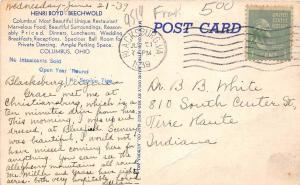 Wednesday - June - 21 - 39
HENRI BOYD'S BEECHWOLD
Columbus' Most Beautiful Unique Restaurant
Marvelous Food, Beautiful Surroundings, Reason-
ably Priced, Dinners, Luncheons, Wedding
Breakfasts, Receptions, Spacious Ball Room for
Private Dancing, Ample Parking Space.
COLUMBUS, OHIO
No Intoxicants Sold
Open Year 'Round
POST CARD
5 00
BLACKSBURG, VA.
JUN 21
PM
1939
Blacksburg
Grace met me at
Christiansburg, which is
ten minutes drive from here
This morning, I was up and
dressed, at Bluefield. Scenery
was beautiful, I would not
have missed coming here for
anything. You can see the
Allegheny mountains all around
Mr Mills and Grace have given
both very
Dr. B B. White
810 South Center St,
Terre Haute
Indiana